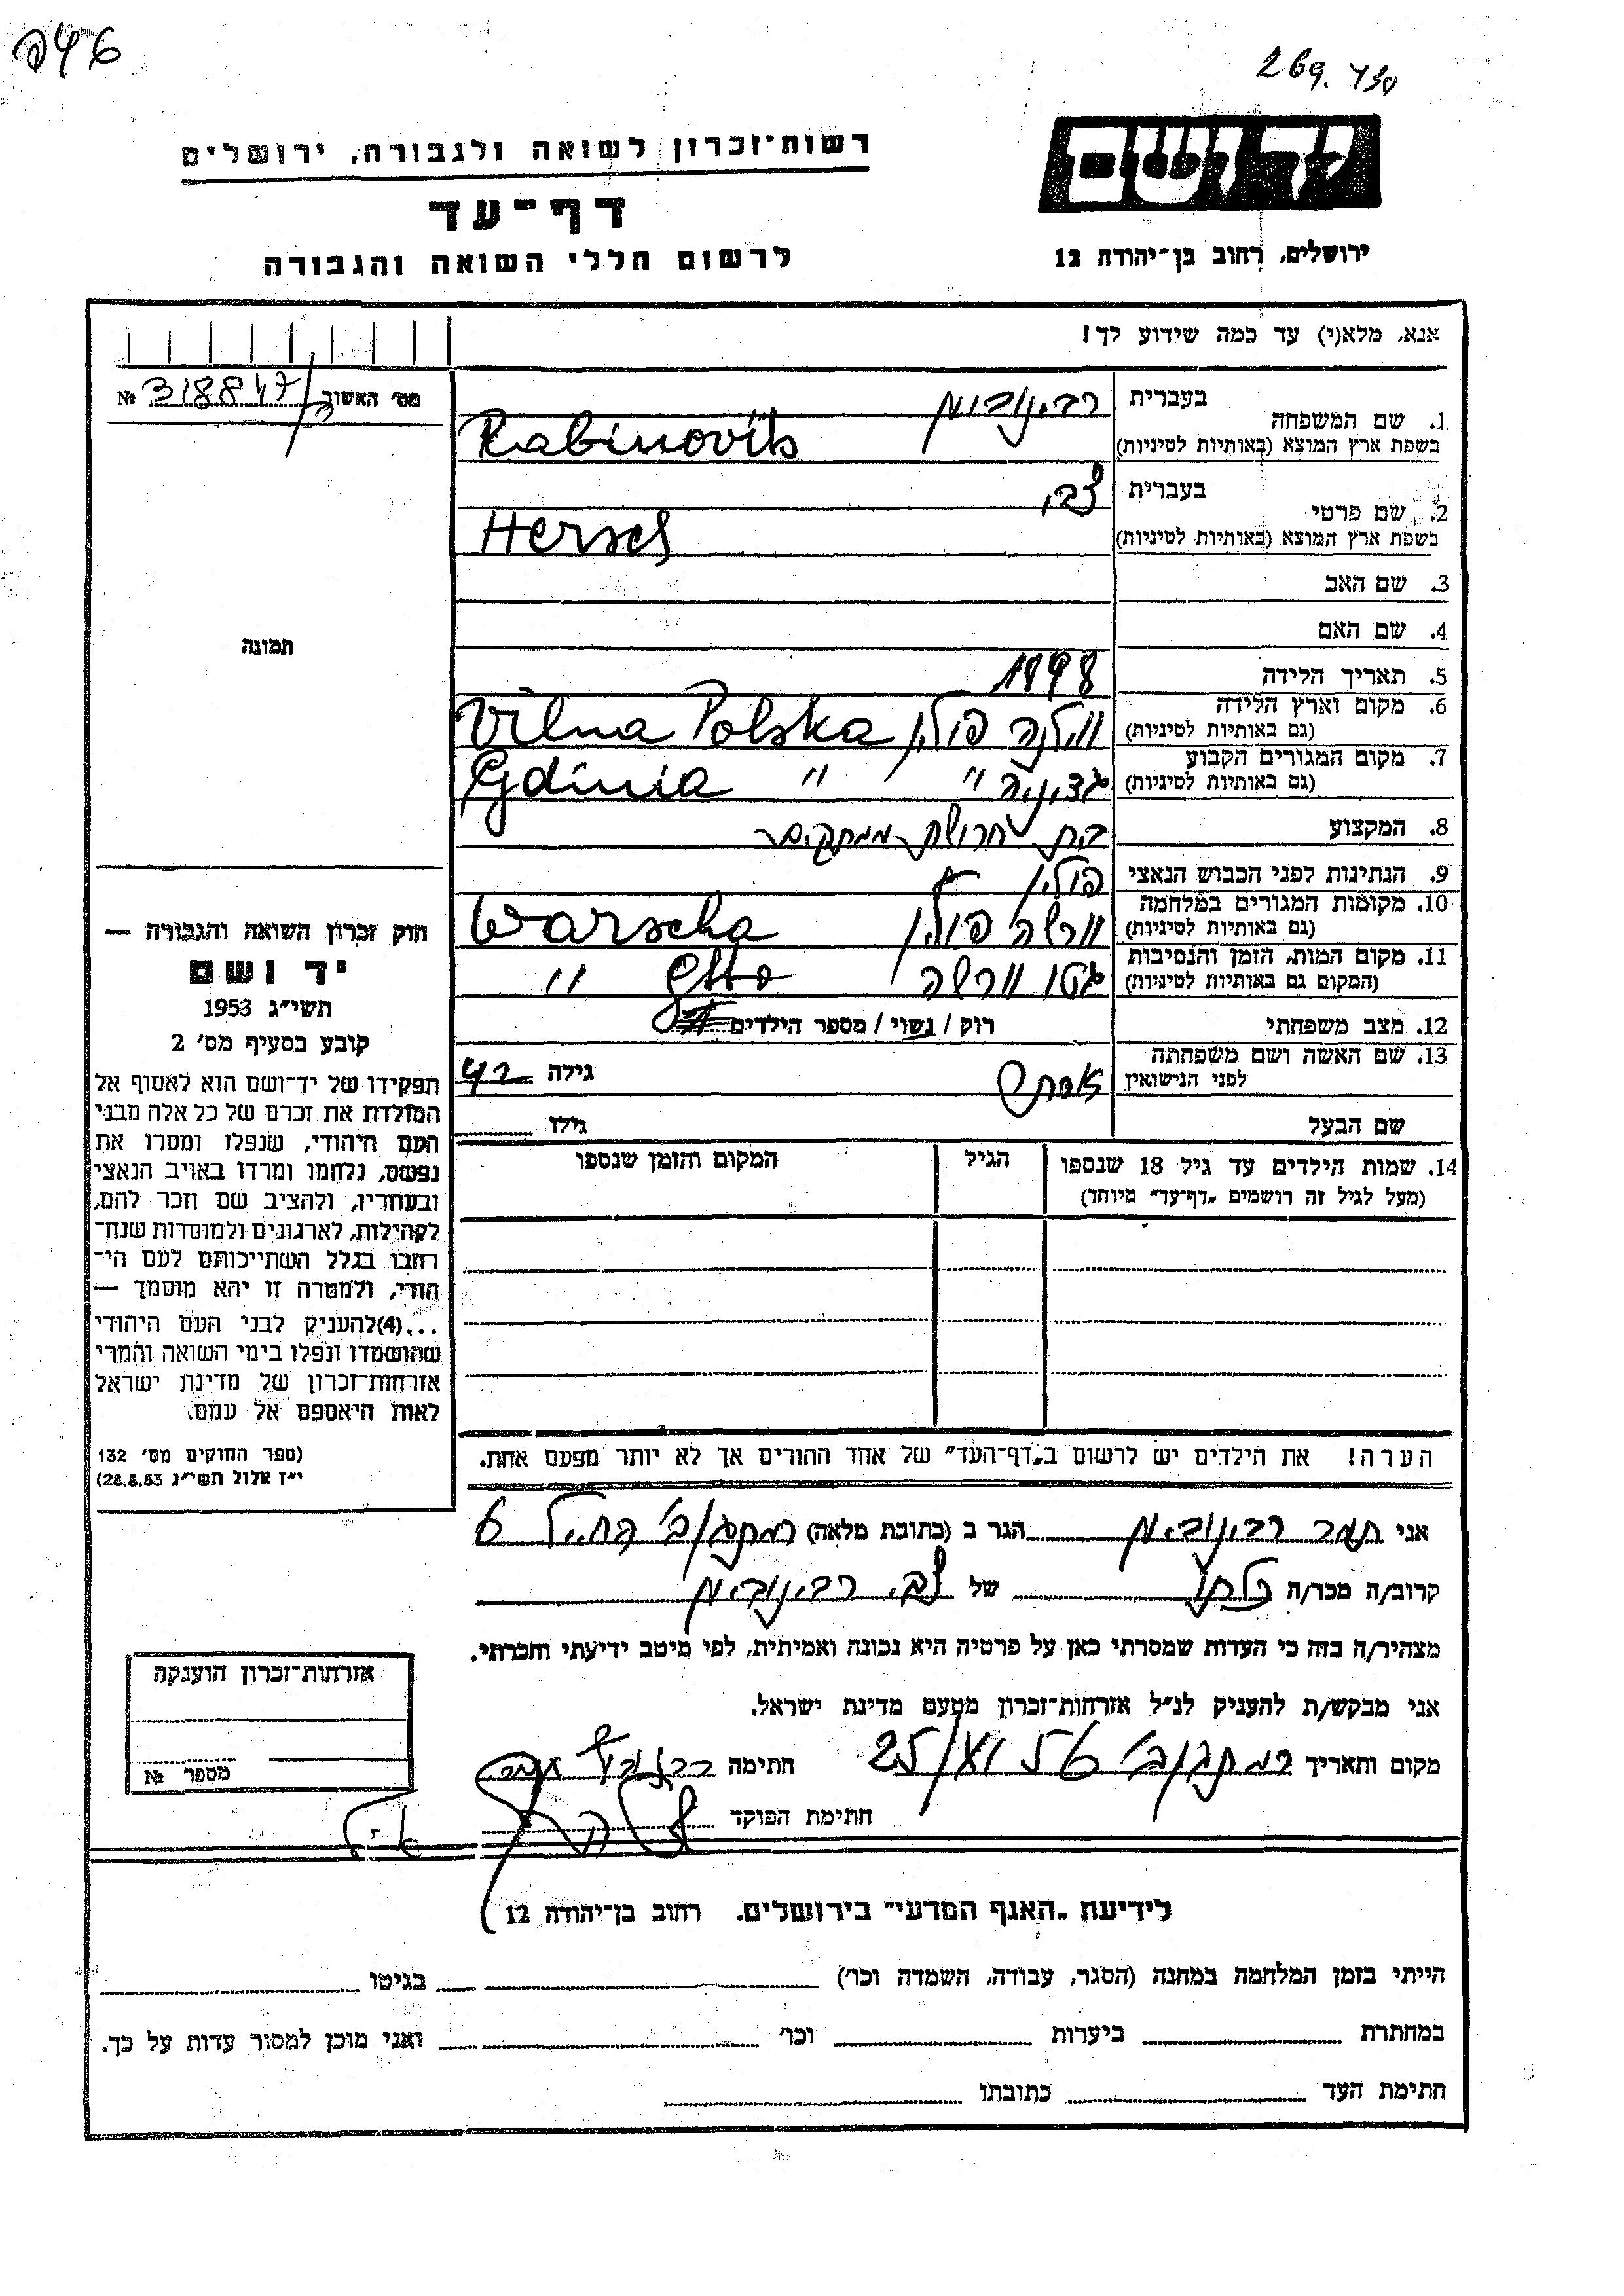 246
269. 430
יד ושם
רשות־זכרון לשואה ולגבורה, ירושלים
דף־עד
לרשום חללי השואה והגבורה
ירושלים, רחוב בן־יהודה 12
אנא, מלא(י) עד כמה שידוע לך!
מס׳ האשוב № 318847
1. שם המשפחה בעברית רבינוביץ
בשפת ארץ המוצא (באותיות לטיניות) Rabinovits
2. שם פרטי בעברית צבי
בשפת ארץ המוצא (באותיות לטיניות) Hersch
3. שם האב
4. שם האם
תמונה
5. תאריך הלידה 1898
6. מקום וארץ הלידה (גם באותיות לטיניות) ווילנה פולין Vilna Polska
7. מקום המגורים הקבוע (גם באותיות לטיניות) גדיניה " Gdinia "
8. המקצוע בית חרושת ממתקים
9. הנתינות לפני הכבוש הנאצי פולין
10. מקומות המגורים במלחמה (גם באותיות לטיניות) וורשה פולין Warscha
11. מקום המות, הזמן והנסיבות (המקום גם באותיות לטיניות) גטו וורשה Getto "
12. מצב משפחתי רוק / נשוי / מספר הילדים
13. שם האשה ושם משפחתה לפני הנישואין אסתר גילה 42
שם הבעל גילו
14. שמות הילדים עד גיל 18 שנספו הגיל המקום והזמן שנספו
(מעל לגיל זה רושמים „דף־עד״ מיוחד)
הערה! את הילדים יש לרשום ב„דף־העד״ של אחד ההורים אך לא יותר מפעם אחת.
חוק זכרון השואה והגבורה —
יד ושם
תשי״ג 1953
קובע בסעיף מס׳ 2
תפקידו של יד־ושם הוא לאסוף אל
המולדת את זכרם של כל אלה מבני
העם היהודי, שנפלו ומסרו את
נפשם, נלחמו ומרדו באויב הנאצי
ובעוזריו, ולהציב שם וזכר להם,
לקהילות, לארגונים ולמוסדות שנח־
רבו בגלל השתייכותם לעם הי־
הודי, ולמטרה זו יהא מוסמך —
...(4)להעניק לבני העם היהודי
שהושמדו ונפלו בימי השואה והמרי
אזרחות־זכרון של מדינת ישראל
לאות היאספם אל עמם.
(ספר החוקים מס׳ 132
י״ז אלול תשי״ג 28.8.53)
אני תמר רבינוביץ הגר ב (כתובת מלאה) רמת גן החייל 6
קרוב/ה מכר/ה כלתו של צבי רבינוביץ
מצהיר/ה בזה כי העדות שמסרתי כאן על פרטיה היא נכונה ואמיתית, לפי מיטב ידיעתי והכרתי.
אני מבקש/ת להעניק לנ״ל אזרחות־זכרון מטעם מדינת ישראל.
מקום ותאריך חתימה
חתימת הפוקד
אזרחות־זכרון הוענקה
מספר №
לידיעת „האגף המדעי״ בירושלים, רחוב בן־יהודה 12
הייתי בזמן המלחמה במחנה (הסגר, עבודה, השמדה וכו׳) בגיטו
במחתרת ביערות וכו׳ ואני מוכן למסור עדות על כך.
חתימת העד כתובתו